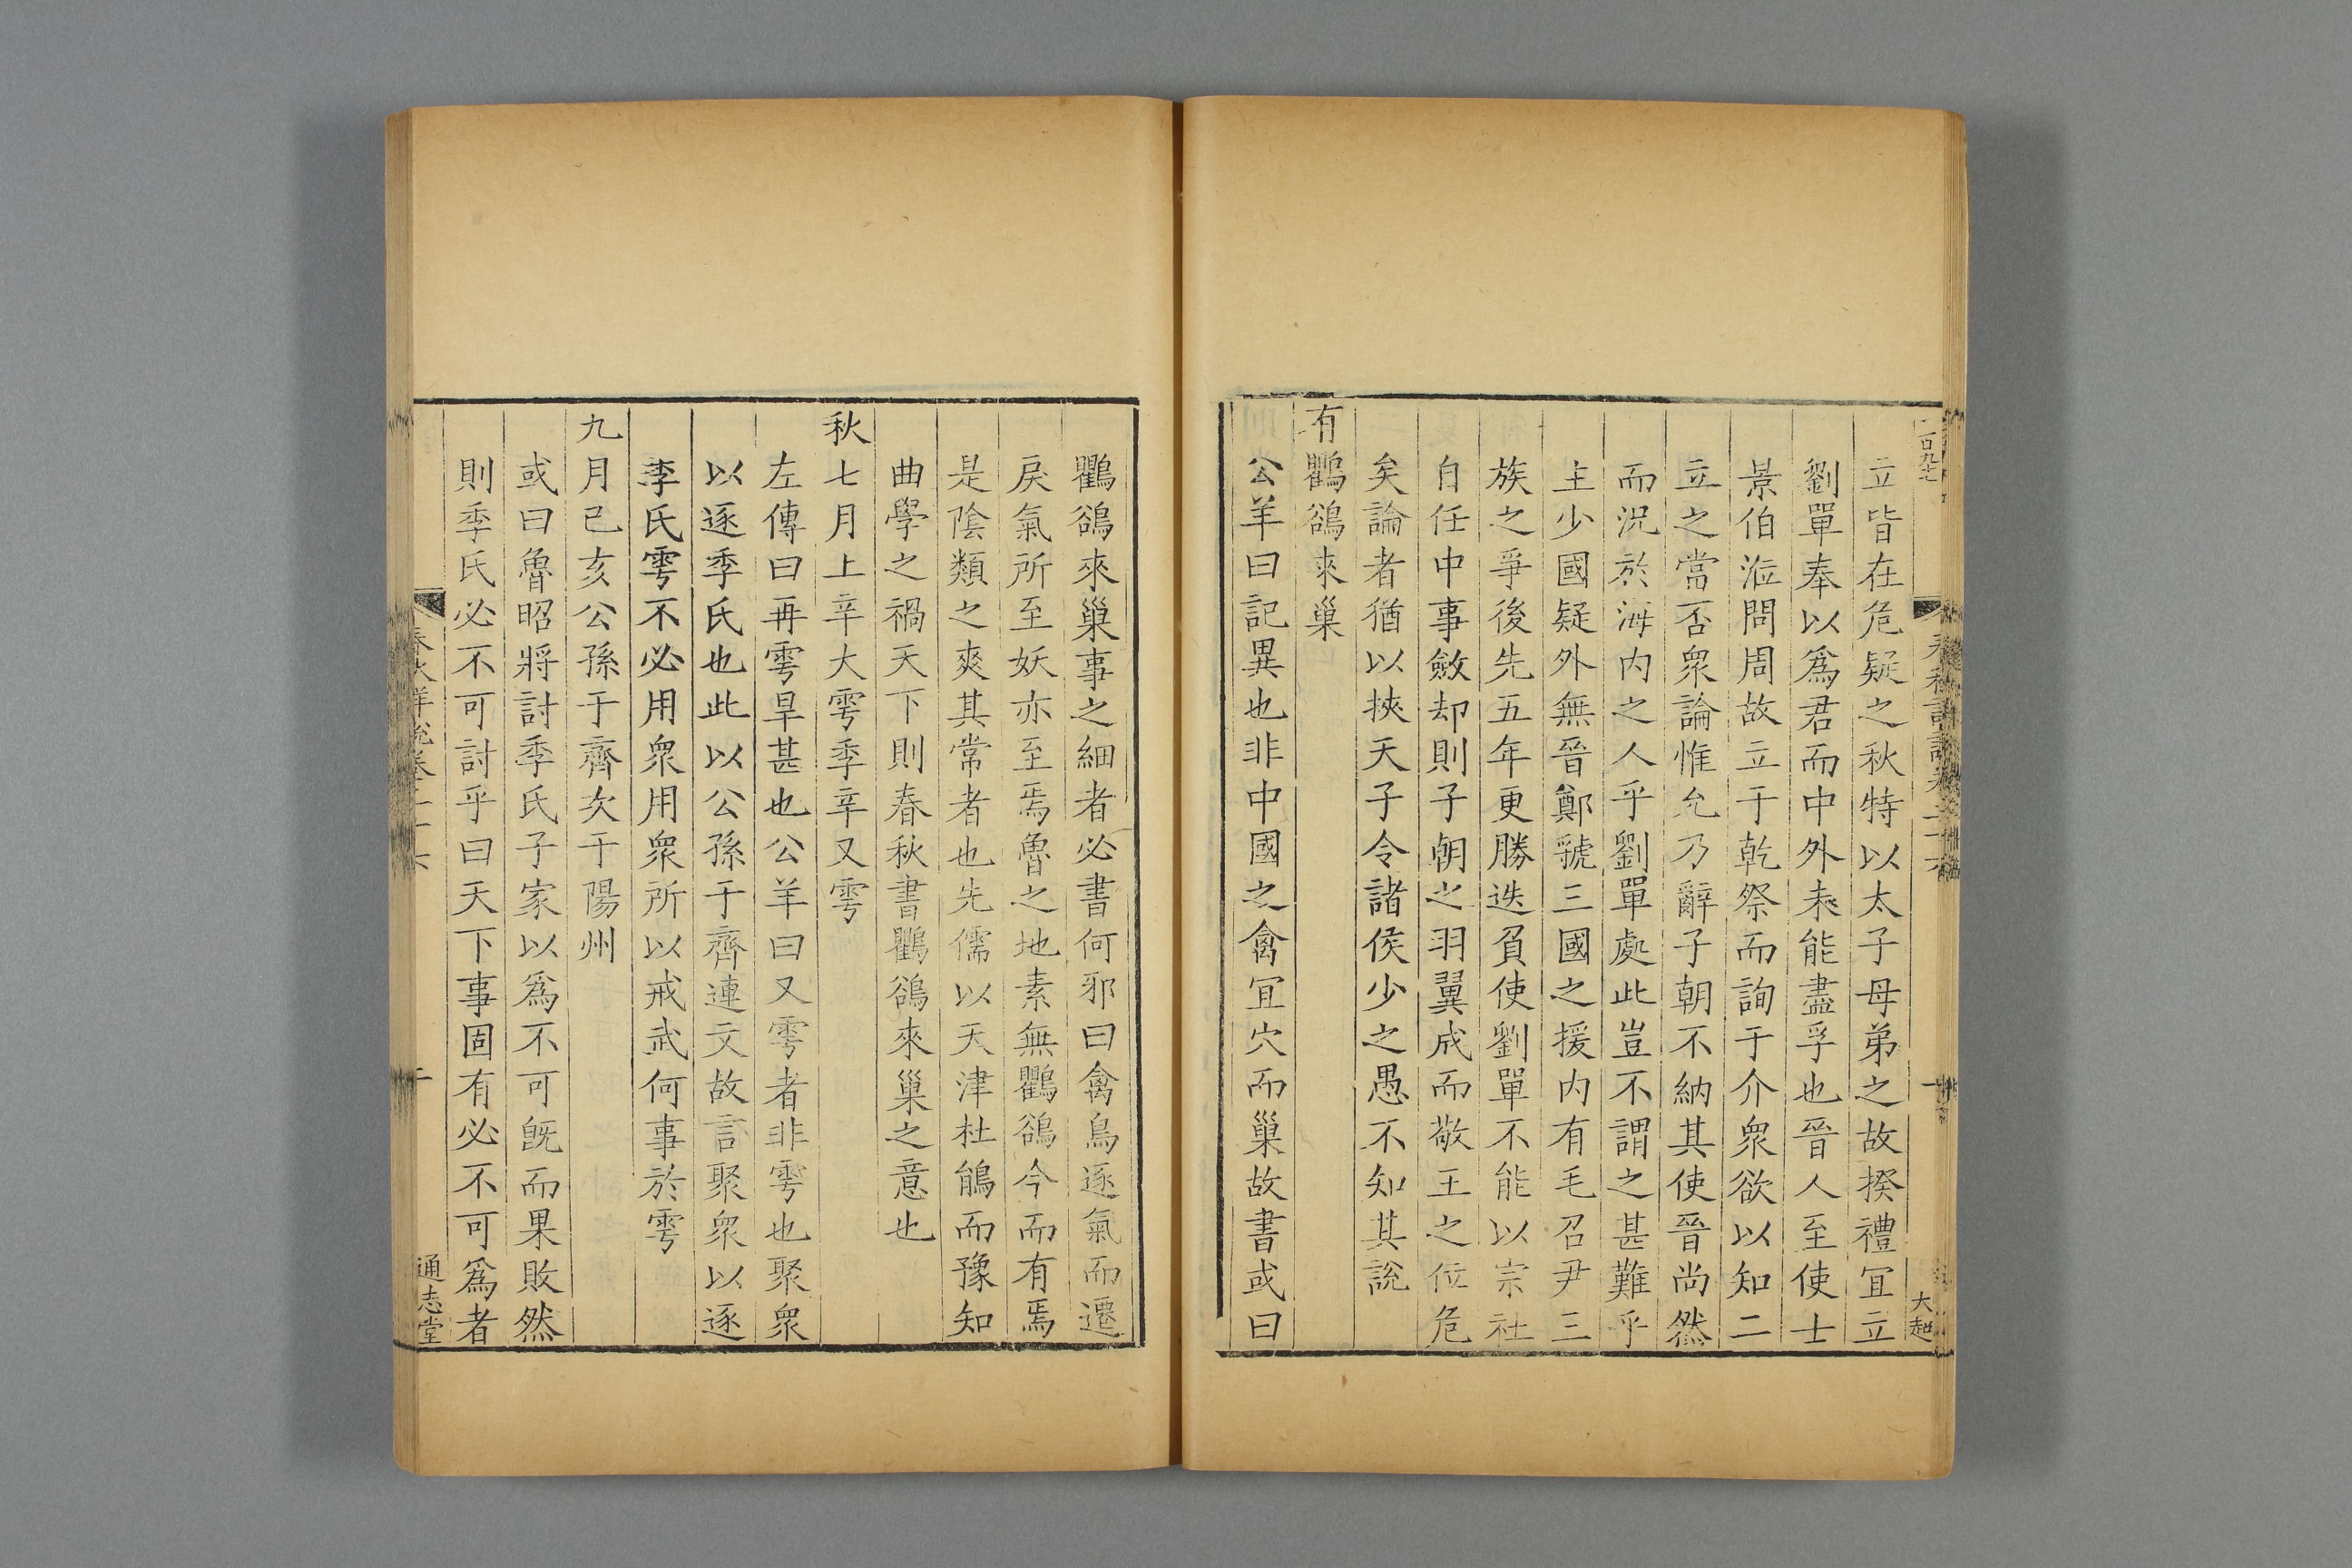 立皆在危疑之秋特以太子母弟之故揆禮宜立
劉單奉以爲君而中外未能盡孚也晉人至使士
景伯涖問周故立于乾祭而詢于介衆欲以知二
立之當否衆論惟允乃辭子朝不納其使晉尚然
而況於海内之人乎劉單處此豈不謂之甚難乎
主少國疑外無晉鄭虢三國之援内有毛召尹三
族之爭後先五年更勝迭負使劉單不能以宗社
自任中事斂却則子朝之羽翼成而敬王之位危
矣論者猶以挾天子令諸侯少之愚不知其說
有鸜鵒來巢
公羊曰記異也非中國之禽宜穴而巢故書或曰
鸜鵒來巢事之細者必書何邪曰禽鳥逐氣而遷
戾氣所至妖亦至焉魯之地素無鸜鵒今而有焉
是陰類之爽其常者也先儒以天津杜鵑而豫知
曲學之禍天下則春秋書鸜鵒來巢之意也
秋七月上辛大雩季辛又雩
左傳曰再雩旱甚也公羊曰又雩者非雩也聚衆
以逐季氏也此以公孫于齊連文故言聚衆以逐
季氏雩不必用衆用衆所以戒武何事於雩
九月己亥公孫于齊次于陽州
或曰魯昭將討季氏子家以爲不可旣而果敗然
則季氏必不可討乎曰天下事固有必不可爲者
通志堂